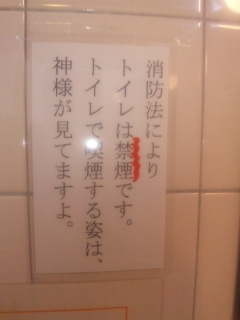 消防法により
トイレは禁煙です。
トイレで喫煙する姿は、
神様が見てますよ。